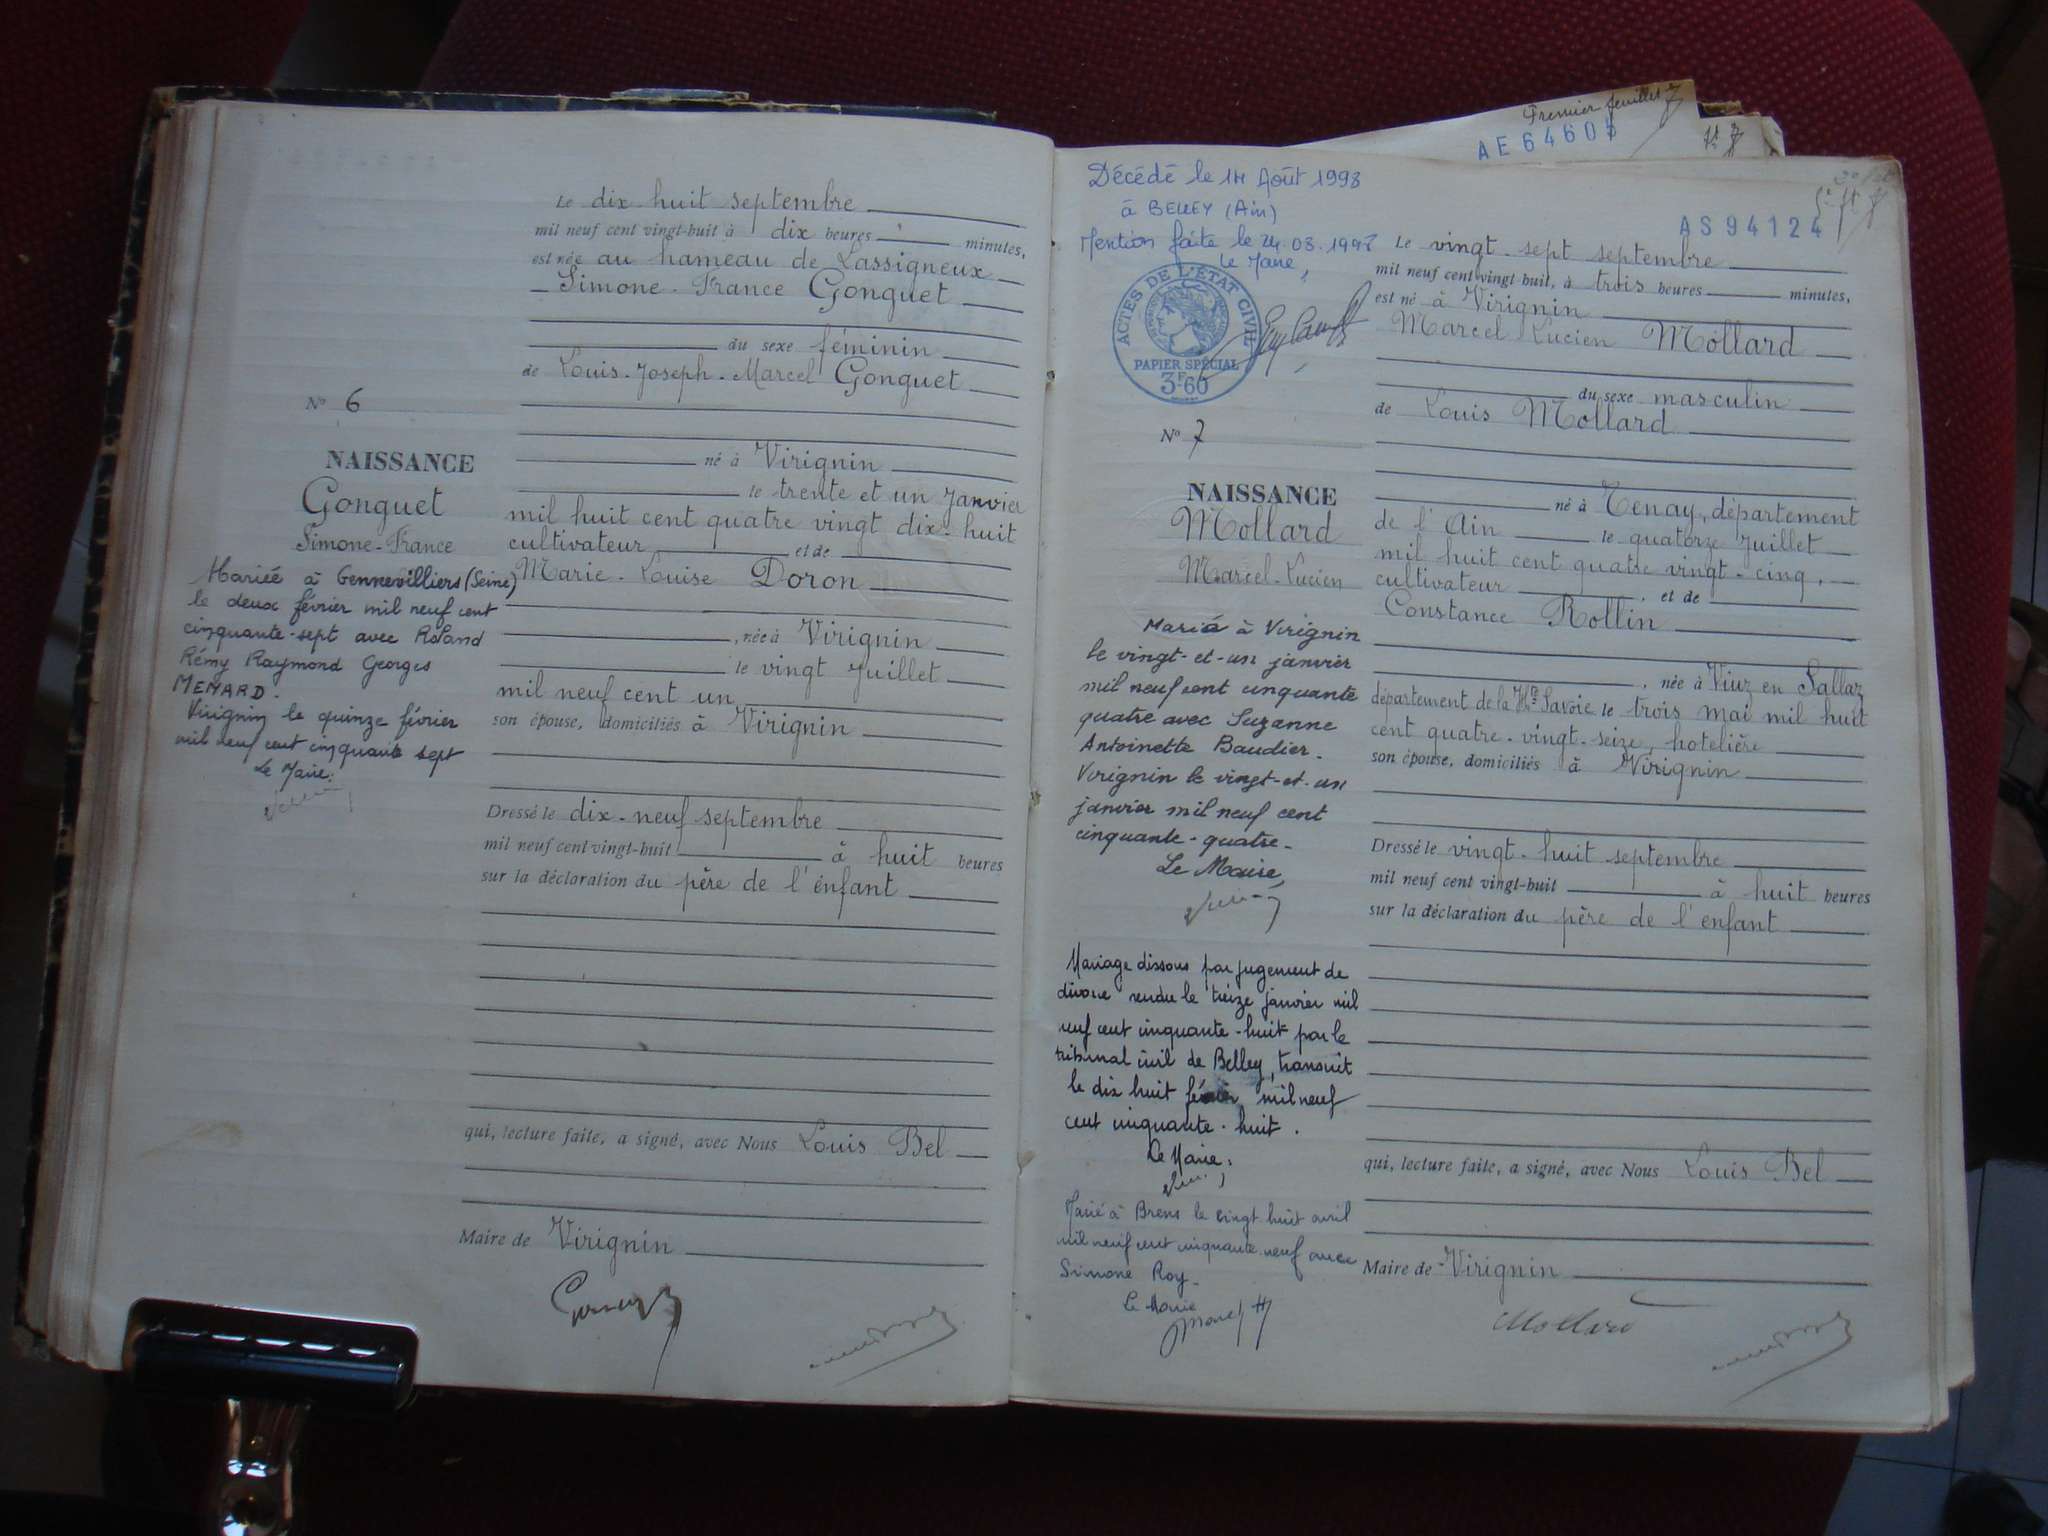 Le dix huit septembre
mil neuf cent vingt-huit à dix heures " minutes,
est née au hameau de Lassigneux
Simone-France Gonguet
du sexe féminin
de Louis-Joseph-Marcel Gonguet
N° 6
né à Virignin
NAISSANCE
le trente et un Janvier
Gonguet
mil huit cent quatre vingt dix-huit
Simone-France
cultivateur et de
Marie-Louise Doron
Mariée à Gennevilliers (Seine)
le deux février mil neuf cent
cinquante-sept avec Roland
Rémy Raymond Georges
MENARD.
Virignin le quinze février
mil neuf cent cinquante sept
Le Maire:
, née à Virignin
le vingt Juillet
mil neuf cent un
son épouse, domiciliés à Virignin
Dressé le dix-neuf septembre
mil neuf cent vingt-huit à huit heures
sur la déclaration du père de l'enfant
qui, lecture faite, a signé, avec Nous Louis Bel
Maire de Virignin
Premier feuillet
AE 6460
AS 94124
Décédé le 14 Août 1998
à BELLEY (Ain)
Mention faite le 24.08.1998
Le Maire,
ACTES DE L'ÉTAT CIVIL
PAPIER SPÉCIAL
3F60
Le vingt-sept septembre
mil neuf cent vingt-huit, à trois heures minutes,
est né à Virignin
Marcel Lucien Mollard
du sexe masculin
de Louis Mollard
N° 7
NAISSANCE
Mollard
Marcel-Lucien
né à Tenay, département
de l'Ain le quatorze Juillet
mil huit cent quatre vingt-cinq,
cultivateur, et de
Constance Rollin
, née à Viuz en Sallaz
département de la Hte Savoie le trois mai mil huit
cent quatre-vingt-seize, hotelière
son épouse, domiciliés à Virignin
Marié à Virignin
le vingt-et-un janvier
mil neuf cent cinquante
quatre avec Suzanne
Antoinette Baudier.
Virignin le vingt-et-un
janvier mil neuf cent
cinquante-quatre-
Le Maire,
Dressé le vingt-huit septembre
mil neuf cent vingt-huit à huit heures
sur la déclaration du père de l'enfant
Mariage dissous par jugement de
divorce rendu le treize janvier mil
neuf cent cinquante-huit par le
tribunal civil de Belley, transcrit
le dix huit février mil neuf
cent cinquante-huit.
Le Maire:
qui, lecture faite, a signé, avec Nous Louis Bel
Marié à Brens le vingt huit avril
mil neuf cent cinquante neuf avec
Simone Roy-
Le Maire
Maire de Virignin
Mollard